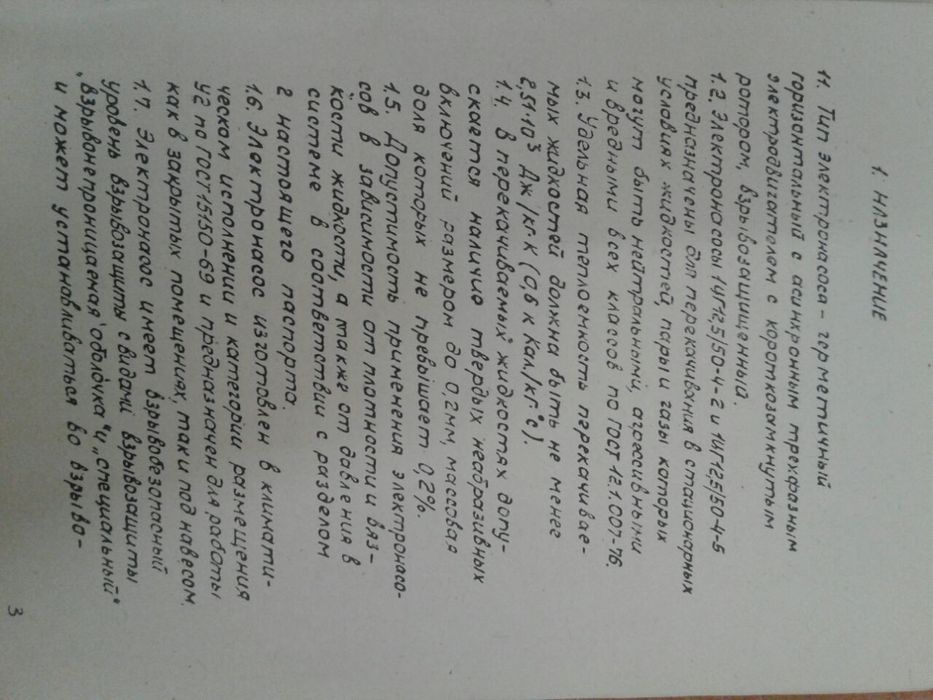 1. НАЗНАЧЕНИЕ
1.1. Тип электронасоса – герметичный
горизонтальный с асинхронным трехфазным
электродвигателем с короткозамкнутым
ротором, взрывозащищенный.
1.2. Электронасосы 1ЦГ12,5/50-4-2 и 1ЦГ12,5/50-4-5
предназначены для перекачивания в стационарных
условиях жидкостей, пары и газы которых
могут быть нейтральными, агрессивными
и вредными всех классов по ГОСТ 12.1.007-76.
1.3. Удельная теплоемкость перекачивае-
мых жидкостей должна быть не менее
2,51·10³ Дж/кг К (0,6 к кал/кг°С).
1.4. В перекачиваемых жидкостях допу-
скается наличие твердых неабразивных
включений размером до 0,2мм, массовая
доля которых не превышает 0,2%.
1.5. Допустимость применения электронасо-
сов в зависимости от плотности и вяз-
кости жидкости, а также от давления в
системе в соответствии с разделом
2 настоящего паспорта.
1.6 Электронасос изготовлен в климати-
ческом исполнении и категории размещения
У2 по ГОСТ15150-69 и предназначен для работы
как в закрытых помещениях, так и под навесом.
1.7. Электронасос имеет взрывобезопасный
уровень взрывозащиты с видами взрывозащиты
„взрывонепроницаемая оболочка" и „специальный"
и может устанавливаться во взрыво-
3